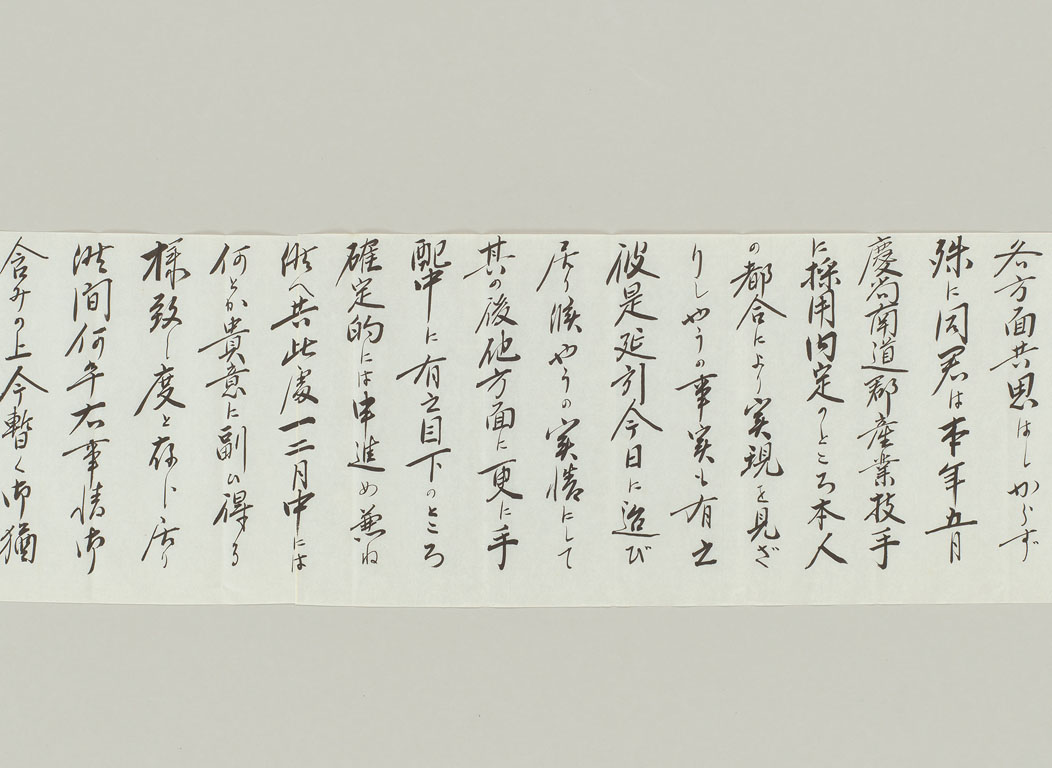 各方面共思はしからず
殊に同君は本年五月
慶尚南道郡産業技手
に採用内定のところ本人
の都合により実現を見ざ
りしやうの事実も有之
彼是延引今日に迨び
居り候やうの実情にして
其の後他方面に更に手
配中に有之目下のところ
確定的には申進め兼ね
候へ共此処一二月中には
何とか貴意に副ひ得る
様致し度と存じ居り
候間何卒右事情御
含みの上今暫く御猶